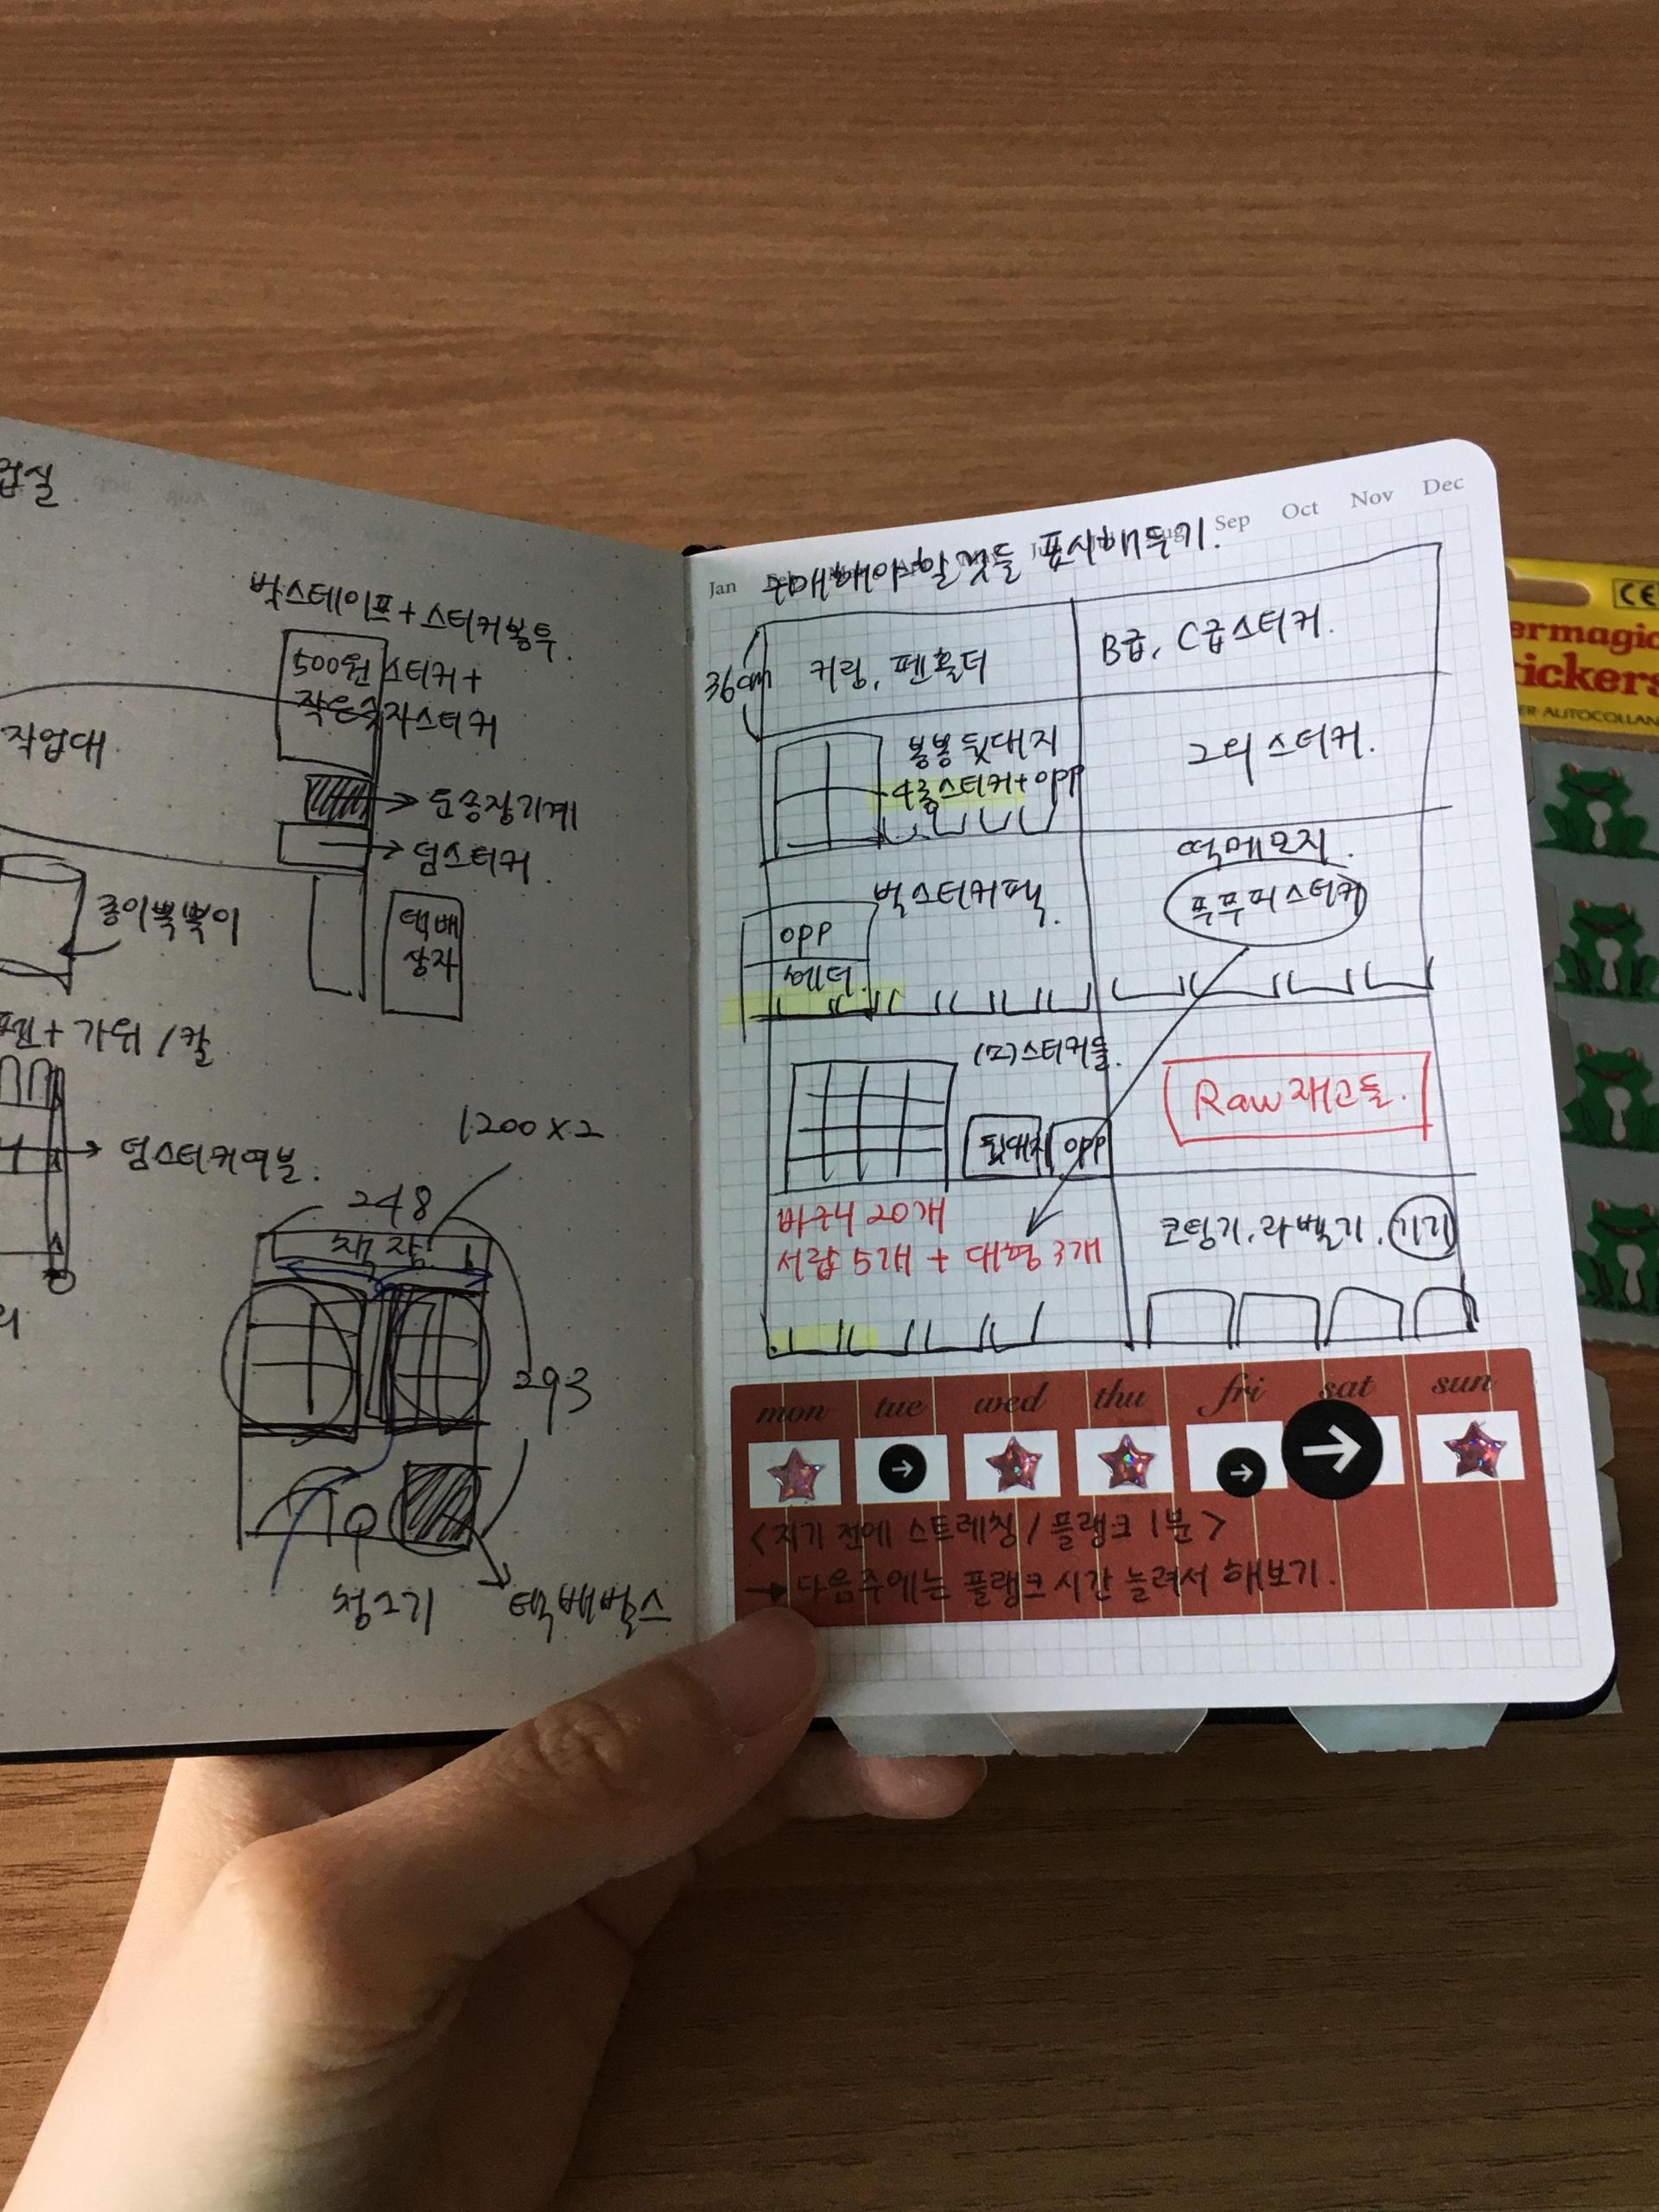 박스테이프 + 스티커봉투.
500원 스티커 +
작은숫자스티커
작업대
→ 운송장기계
→ 덤스티커
종이뽁뽁이
택배
상자
펜 + 가위 / 칼
→ 덤스티커여분.
1200 x 2
248
책장
293
청소기
택배박스
Jan
Sep
Oct
Nov
Dec
구매해야 할 것들 표시해두기.
36cm
키링, 펜홀더
B급, C급스티커.
봉봉 뒷대지
4종스티커 + opp
그외 스티커.
떡메모지.
박스터커팩.
푸푸피스티커
opp
헤더.
(고)스티커들.
뒷대지
opp
Raw 재고들.
바구니 20개
서랍 5개 + 대형 3개
코팅기, 라벨기, 기기
mon
tue
wed
thu
fri
sat
sun
<자기 전에 스트레칭 / 플랭크 1분>
→ 다음주에는 플랭크 시간 늘려서 해보기.
CE
ermagic
tickers
ER AUTOCOLLAN